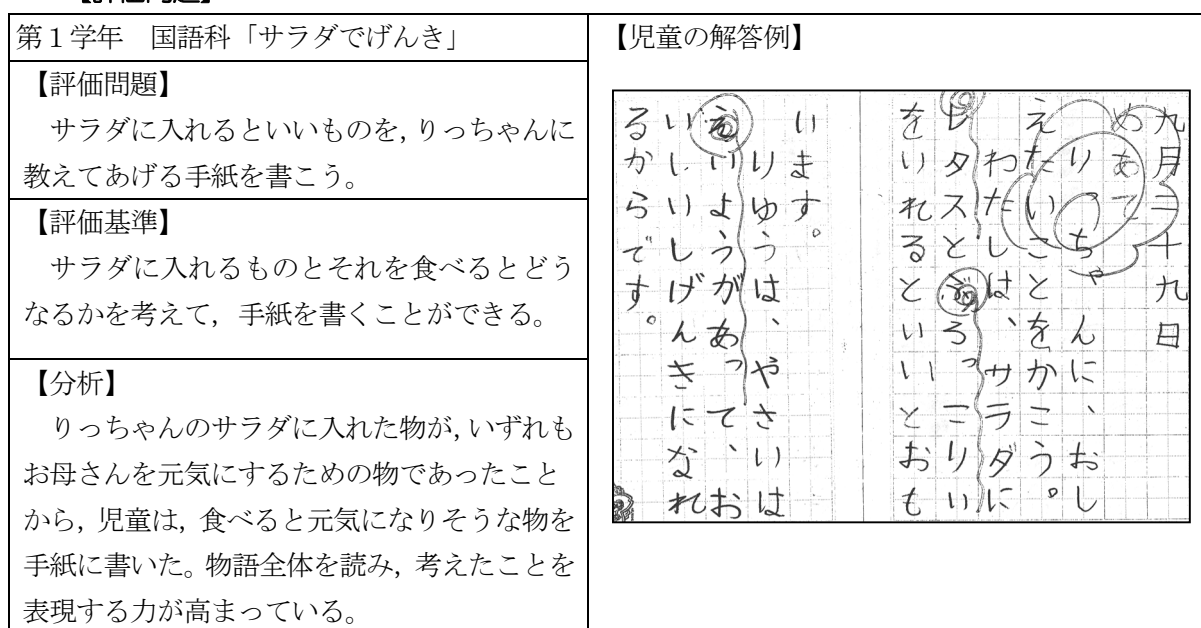 【評価問題】
第1学年　国語科「サラダでげんき」
【評価問題】
サラダに入れるといいものを，りっちゃんに
教えてあげる手紙を書こう。
【評価基準】
サラダに入れるものとそれを食べるとどう
なるかを考えて，手紙を書くことができる。
【分析】
りっちゃんのサラダに入れた物が，いずれも
お母さんを元気にするための物であったこと
から，児童は，食べると元気になりそうな物を
手紙に書いた。物語全体を読み，考えたことを
表現する力が高まっている。
【児童の解答例】
九月二十九日
めあて
りっちゃんに、おし
えたいことをかこう。
わたしは、サラダに
レタスとぶろっこりい
をいれるといいとおも
います。
りゆうは、やさいは
えいようがあって、お
いしいしげんきになれ
るからです。